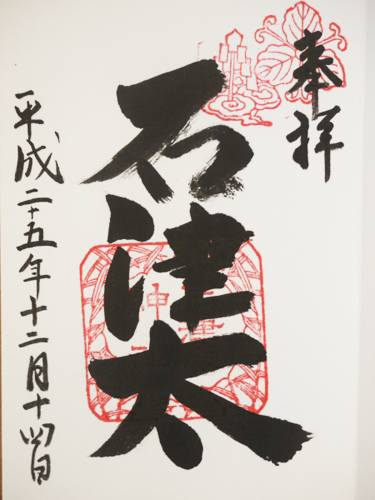 奉拝
石津太
平成二十五年十二月十四日